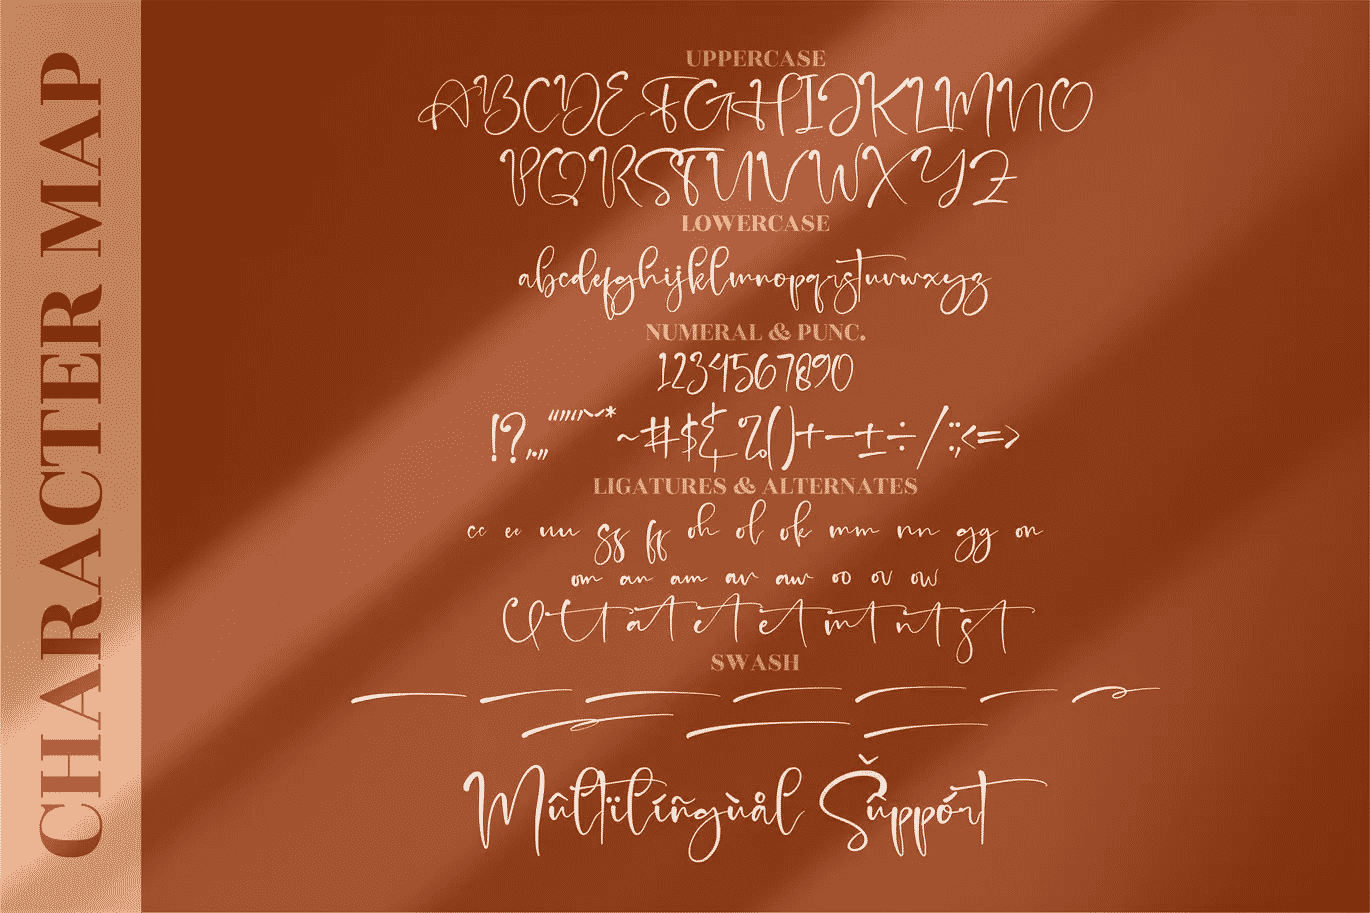 CHARACTER MAP
UPPERCASE
ABCDEFGHIJKLMNO
PQRSTUVWXYZ
LOWERCASE
abcdefghijklmnopqrstuvwxyz
NUMERAL & PUNC.
1234567890
!?..,,""''~* ~#$& %()+−±÷/:;<=>
LIGATURES & ALTERNATES
cc ee uu ss ff oh ol ok mm nn gg on
om an am av aw oo ov ow
tt at ct et mt nt st
SWASH
Mûltïlíñgùål Šûppórt